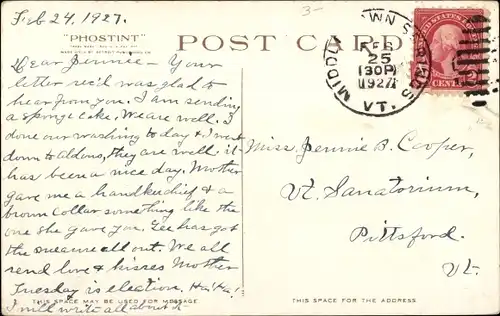 Feb 24, 1927.
3-
"PHOSTINT"
POST CARD
MIDDLETOWN SPRINGS
FEB
25
130P
1927
VT.
CENTS
Dear Jennie - Your
letter rec'd was glad to
hear from you. I am sending
a sponge cake, We are well. I
done our washing to day & I went
down to Aldons, they are well it
has been a nice day. Mother
gave me a handkerchief & a
brown Collar something like the
one she gave you. Lee has got
the all out. We all
send love & kisses Mother
Tuesday is election. Ha! Ha!
I will write all about it
Miss. Jennie B. Cooper,
Vt. Sanatorium,
Pittsford.
Vt.
THIS SPACE MAY BE USED FOR MESSAGE.
THIS SPACE FOR THE ADDRESS